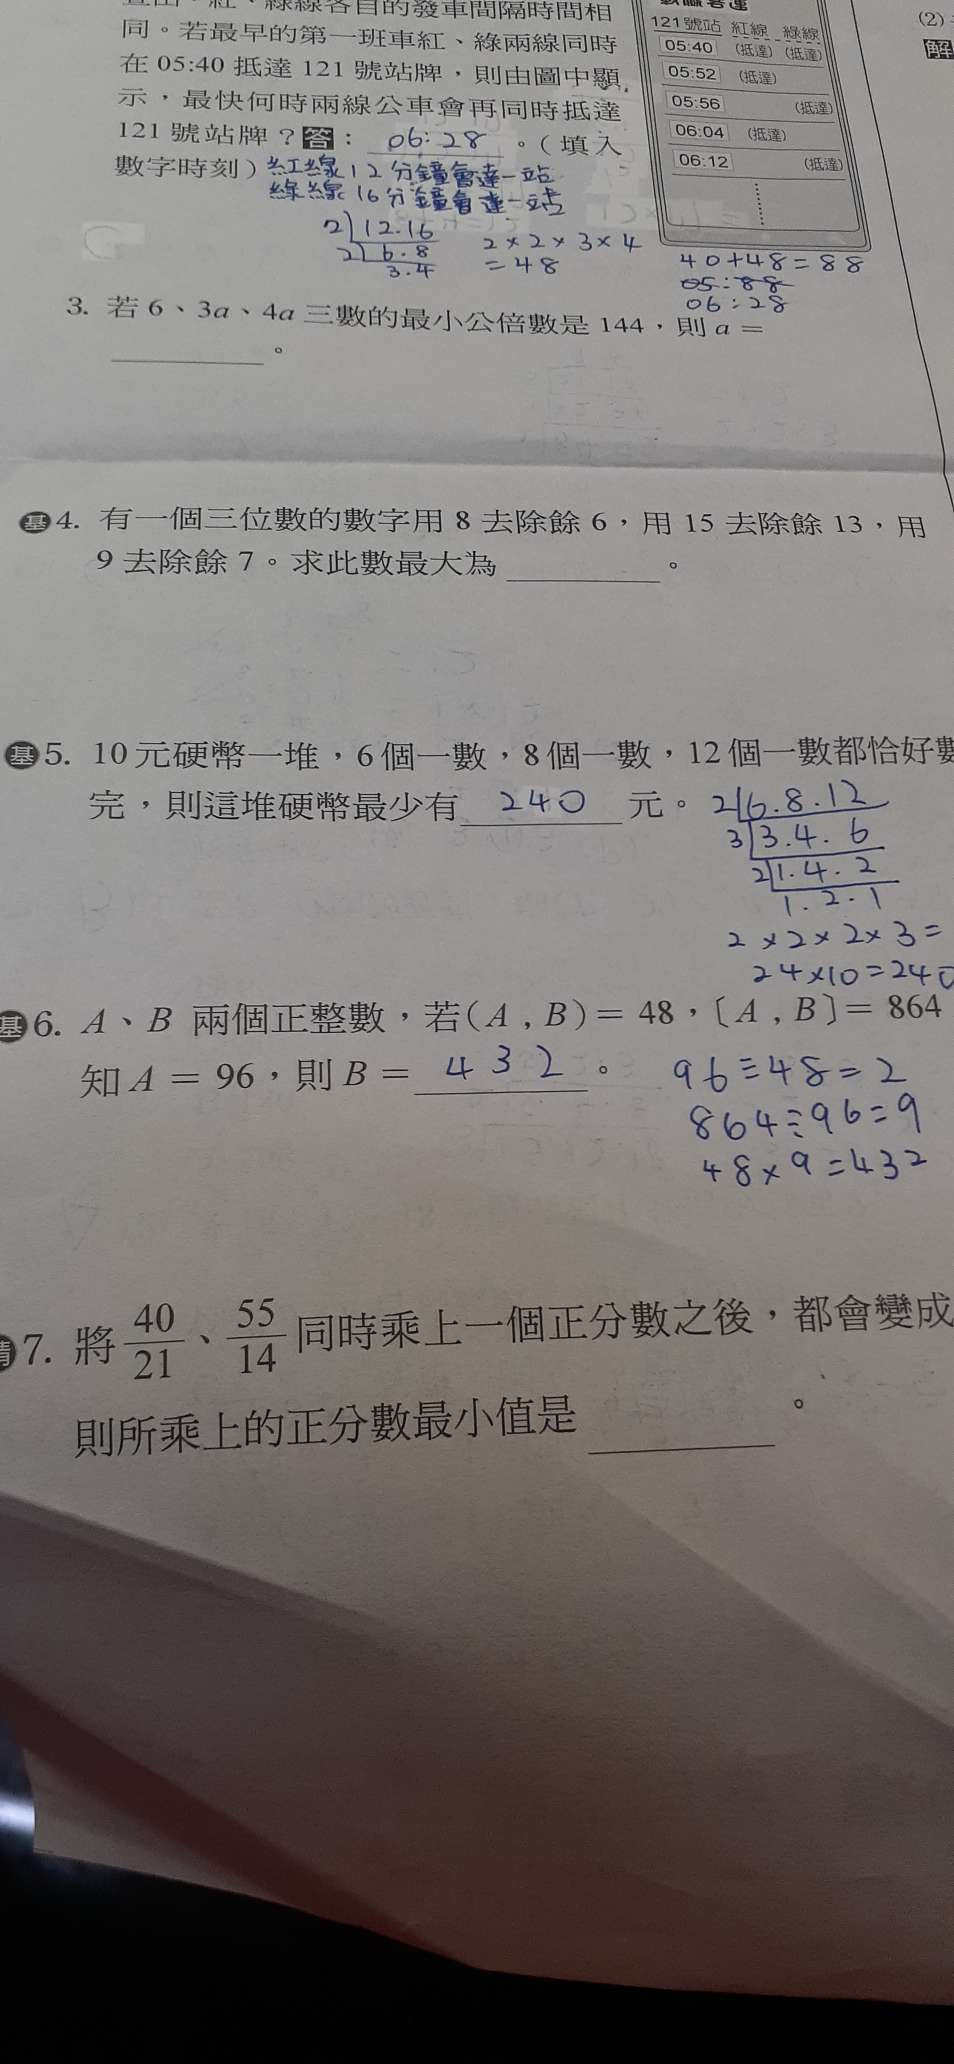 綠線各自的發車間隔時間相
同。若最早的第一班車紅、綠兩線同時
在 05:40 抵達 121 號站牌，則由圖中顯
示，最快何時兩線公車會再同時抵達
121 號站牌？答： 06:28 。（填入
數字時刻）紅線12分鐘會達一站
綠線16分鐘會達一站
2 12.16
2 6.8
3.4
2×2×3×4
=48
121號站 紅線 綠線
05:40 （抵達）（抵達）
05:52 （抵達）
05:56 （抵達）
06:04 （抵達）
06:12 （抵達）
40+48=88
05:88
06:28
(2)
解
3. 若 6、3a、4a 三數的最小公倍數是 144，則 a =
。
基4. 有一個三位數的數字用 8 去除餘 6，用 15 去除餘 13，用
9 去除餘 7。求此數最大為 。
基5. 10 元硬幣一堆，6 個一數，8 個一數，12 個一數都恰好數
完，則這堆硬幣最少有 240 元。
2 6.8.12
3 3.4.6
2 1.4.2
1.2.1
2×2×2×3=
24×10=240
基6. A、B 兩個正整數，若(A , B)=48，〔A , B〕=864
知 A = 96，則 B = 432 。
96÷48=2
864÷96=9
48×9=432
7. 將 40/21、55/14 同時乘上一個正分數之後，都會變成
則所乘上的正分數最小值是 。